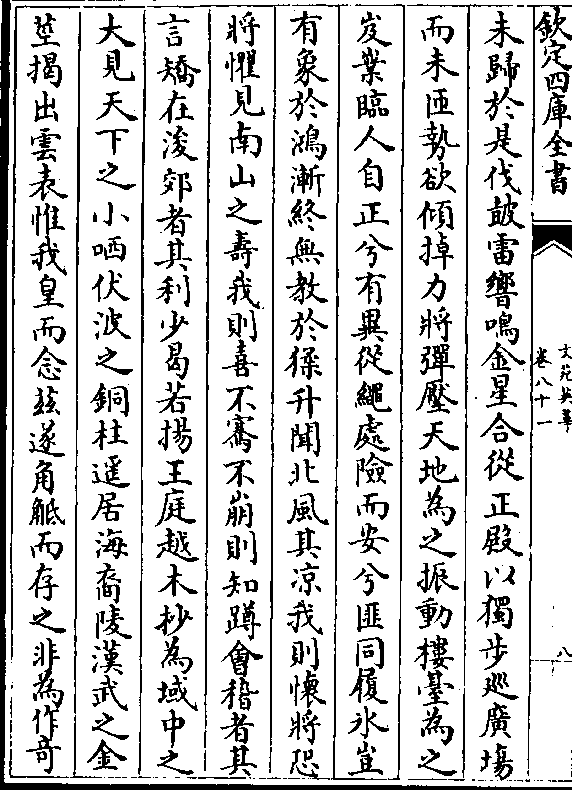 欽定四庫全書
文苑英華
卷八十一
八
未歸於是伐鼓雷響鳴金星合從正殿以獨步廵廣場
而未匝勢欲傾掉力將彈壓天地為之振動樓臺為之
岌業臨人自正兮有異從繩處險而安兮匪同履氷豈
有象於鴻漸終無教於猱升聞北風其凉我則懷將恐
將懼見南山之壽我則喜不騫不崩則知蹲會稽者其
言矯在浚郊者其利少曷若揚王庭越木抄為域中之
大見天下之小哂伏波之銅柱遥居海裔陵漢武之金
莖揭出雲表惟我皇而念兹遂角觝而存之非為作竒